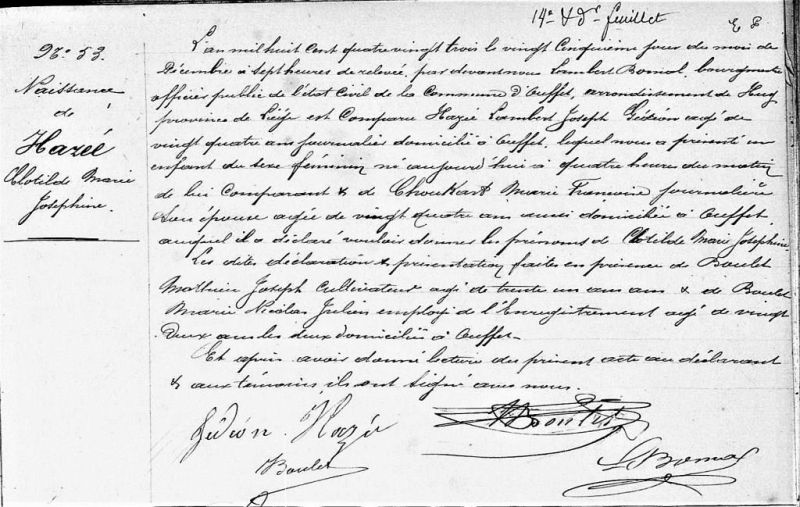 14e & Dr feuillet
N° 53.
Naissance
de
Hazée
Clotilde Marie
Joséphine.
L'an mil huit cent quatre vingt trois le vingt cinquième jour du mois de
Décembre à sept heures de relevée, par devant nous Lambert Bomal, bourgmestre
officier public de l'état civil de la Commune d'Ouffet, arrondissement de Huy
province de Liége est Comparu Hazée Lambert Joseph Gédéon agé de
vingt quatre ans journalier domicilié à Ouffet, lequel nous a présenté un
enfant du sexe féminin né aujourd'hui à quatre heures du matin
de lui Comparant & de Choukart Marie Françoise journalière
son épouse agée de vingt quatre ans aussi domiciliée à Ouffet
auquel il a déclaré vouloir donner les prénoms de Clotilde Marie Joséphine
Les dites déclaration & présentation faites en présence de Boulet
Mathieu Joseph Cultivateur agé de trente un ans ans & de Boulet
Marie Nicolas Julien employé de l'Enregistrement agé de vingt
deux ans les deux domiciliés à Ouffet.
Et après avoir donné lecture du présent acte au déclarant
& aux témoins ils ont signé avec nous.
Gédéon Hazée
Boulet
LBomal